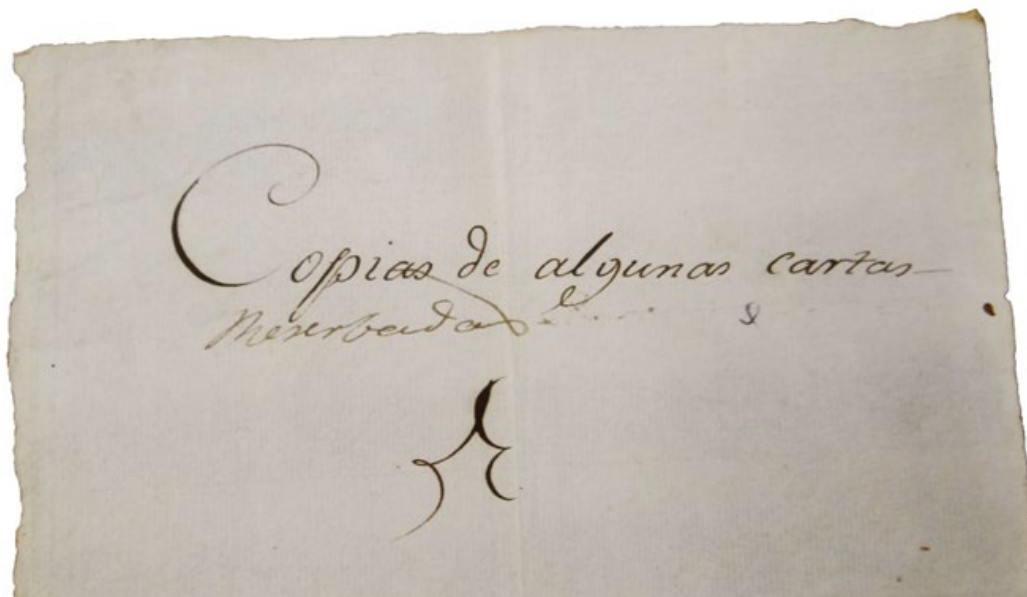 Copias de algunas cartas
Reserbadas